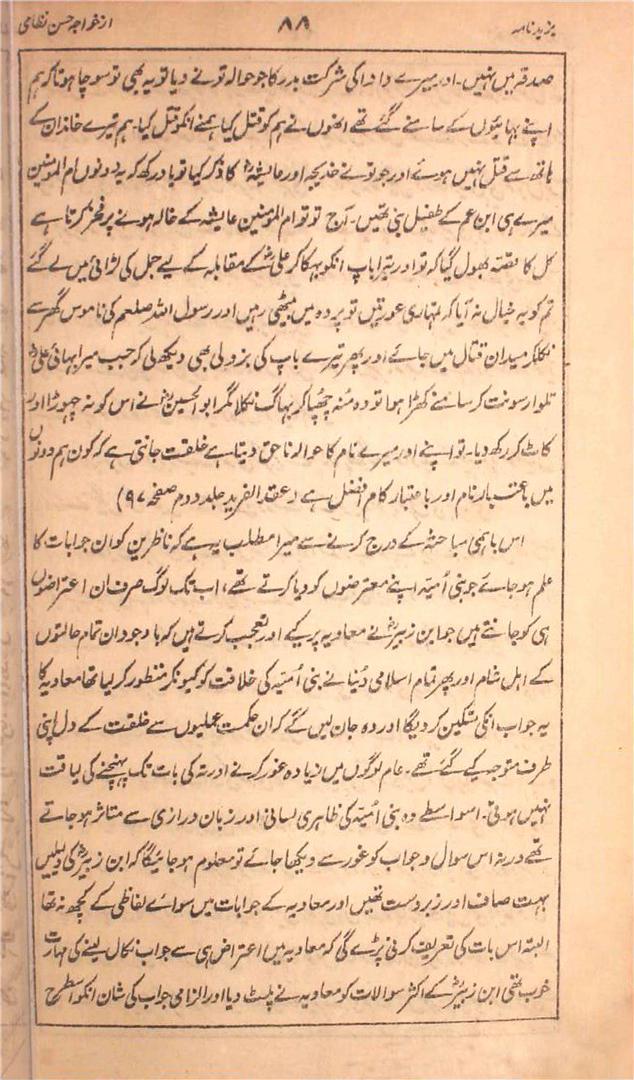 یزید نامہ ۸۸ از خواجہ حسن نظامی
صدقہ میں نہیں۔ اور میرے دادا کی شرکت بدر کا جو حوالہ تونے دیا تو یہ بھی تو سوچا ہوتا کہ ہم
اپنے بہائیوں کے سامنے گئے تھے انھوں نے ہم کو قتل کیا ہمنے انکو قتل کیا۔ ہم تیرے خاندان کے
ہاتھ سے قتل نہیں ہوئے اور جو تونے خدیجہ اور عایشہؓ کا ذکر کیا تو یاد رکھ کہ یہ دونوں ام المومنین
میرے ہی ابن عم کے طفیل بنی تھیں۔ آج تو تو ام المومنین عایشہ کے خالہ ہونے پر فخر کرتا ہے
کل کا قصہ بھول گیا کہ تو اور تیرا باپ انکو بہکا کر علیؓ کے مقابلہ کے لیے جمل کی لڑائی میں لے گئے
تم کو یہ خیال نہ آیا کہ تمہاری عورتیں تو پردہ میں بیٹھی رہیں اور رسول اللہ صلعم کی ناموس گھر سے
نکلکر میدان قتال میں جائے اور پھر تیرے باپ کی بزدلی بھی دیکھ لی کہ جب میرا بہائی علیؓ
تلوار سونت کر سامنے کھڑا ہوا تو وہ منہ چھپا کر بہاگ نکلا مگر ابو الحسینؓ نے اس کو نہ چہوڑا اور
کاٹ کر رکھ دیا۔ تو اپنے اور میرے نام کا حوالہ ناحق دیتا ہے خلقت جانتی ہے کہ کون ہم دونوں
میں باعتبار نام اور باعتبار کام افضل ہے (عقد الفرید جلد دوم صفحہ ۹۷)
اس باہمی مباحثہ کے درج کرنے سے میرا مطلب یہ ہے کہ ناظرین کو ان جوابات کا
علم ہو جائے جو بنی اُمیّہ اپنے معترضوں کو دیا کرتے تھے، اب تک لوگ صرف ان اعتراضوں
ہی کو جانتے ہیں جو ابن زبیرؓ نے معاویہ پر کیے اور تعجب کرتے ہیں کہ باوجود ان تمام حالتوں
کے اہل شام اور پھر تمام اسلامی دُنیا نے بنی اُمیّہ کی خلافت کو کیونکر منظور کر لیا تھا معاویہ کا
یہ جواب انکی تسکین کر دیگا اور وہ جان لیں گے کہ ان حکمت عملیوں سے خلقت کے دل اپنی
طرف متوجہ کیے گئے تھے۔ عام لوگوں میں زیادہ غور کرنے اور تہ کی بات تک پہنچنے کی لیاقت
نہیں ہوتی۔ اسواسطے وہ بنی اُمیّہ کی ظاہری لسانی اور زبان درازی سے متاثر ہو جاتے
تھے ورنہ اس سوال و جواب کو غور سے دیکھا جائے تو معلوم ہو جائیگا کہ ابن زبیرؓ کی دلیلیں
بہت صاف اور زبردست تھیں اور معاویہ کے جوابات میں سوائے لفاظی کے کچھ نہ تھا
البتہ اس بات کی تعریف کرنی پڑے گی کہ معاویہ میں اعتراض ہی سے جواب نکال لینے کی مہارت
خوب تھی ابن زبیرؓ کے اکثر سوالات کو معاویہ نے پلٹ دیا اور الزامی جواب کی شان انکو اسطرح